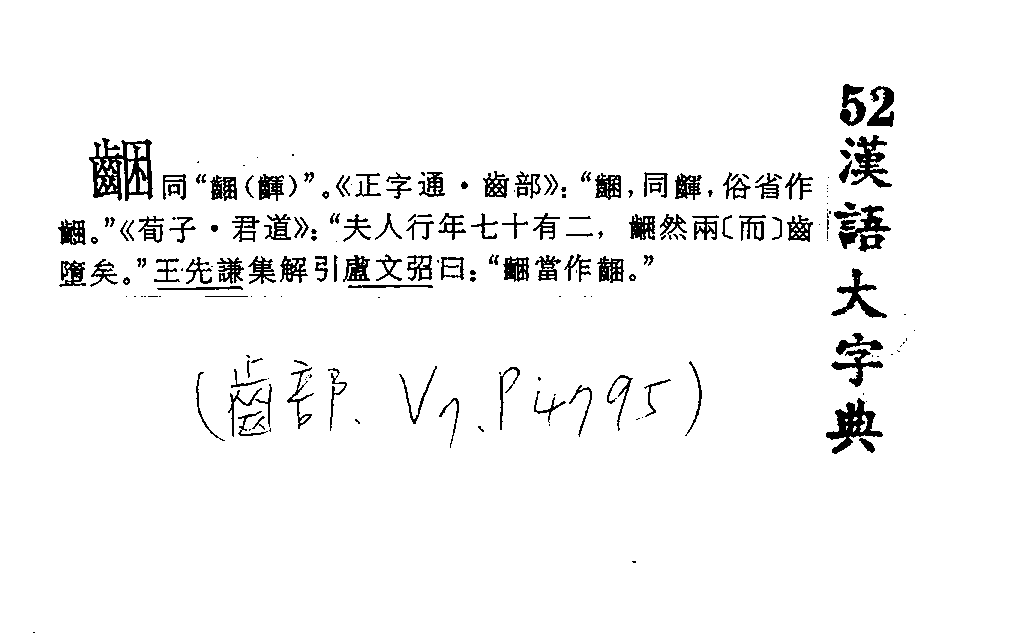 52漢語大字典
同“齫(齳)”。《正字通·齒部》:“齫,同齳,俗省作
。”《荀子·君道》:“夫人行年七十有二, 然兩〔而〕齒
墮矣。”王先謙集解引盧文弨曰:“ 當作齫。”
(齒部、V7、P4795)